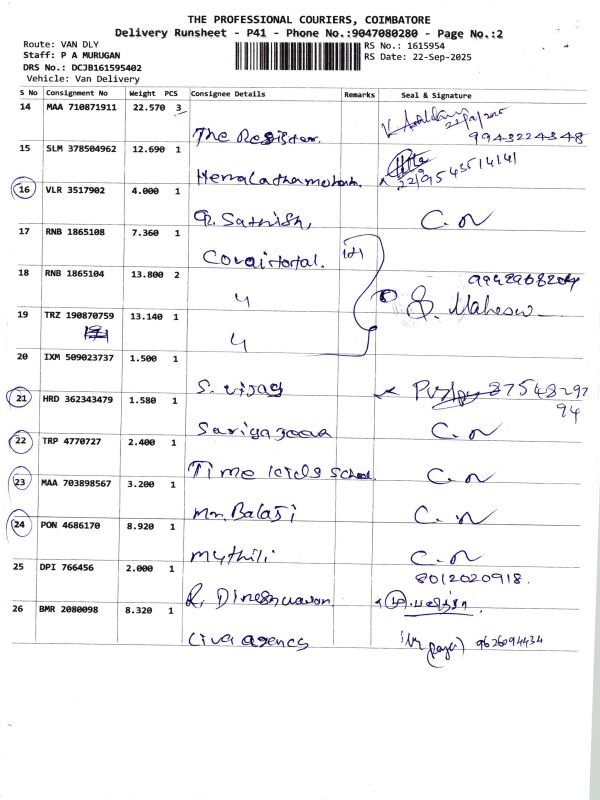 THE PROFESSIONAL COURIERS, COIMBATORE
Delivery Runsheet - P41 - Phone No.:9047080280 - Page No.:2
Route: VAN DLY
RS No.: 1615954
Staff: P A MURUGAN
RS Date: 22-Sep-2025
DRS No.: DCJB161595402
Vehicle: Van Delivery
S No Consignment No Weight PCS Consignee Details Remarks Seal & Signature
14 MAA 710871911 22.570 3 The Register. 9943224348
15 SLM 378504962 12.690 1 Hemalatha
16 VLR 3517902 4.000 1 Sathish, C. N
17 RNB 1865108 7.360 1 Covai total.
18 RNB 1865104 13.800 2 4 S. Maheswa
19 TRZ 190870759 13.140 1 4
20 IXM 509023737 1.500 1 S. vijay 8754829794
21 HRD 362343479 1.580 1 C. N
22 TRP 4770727 2.400 1 Time kids School. C. N
23 MAA 703898567 3.200 1 Balaji C. N
24 PON 4686170 8.920 1 Mythili C. N
25 DPI 766456 2.000 1 R. Dineshwaran 8012020918.
26 BMR 2080098 8.320 1 Civa agency 9626094434